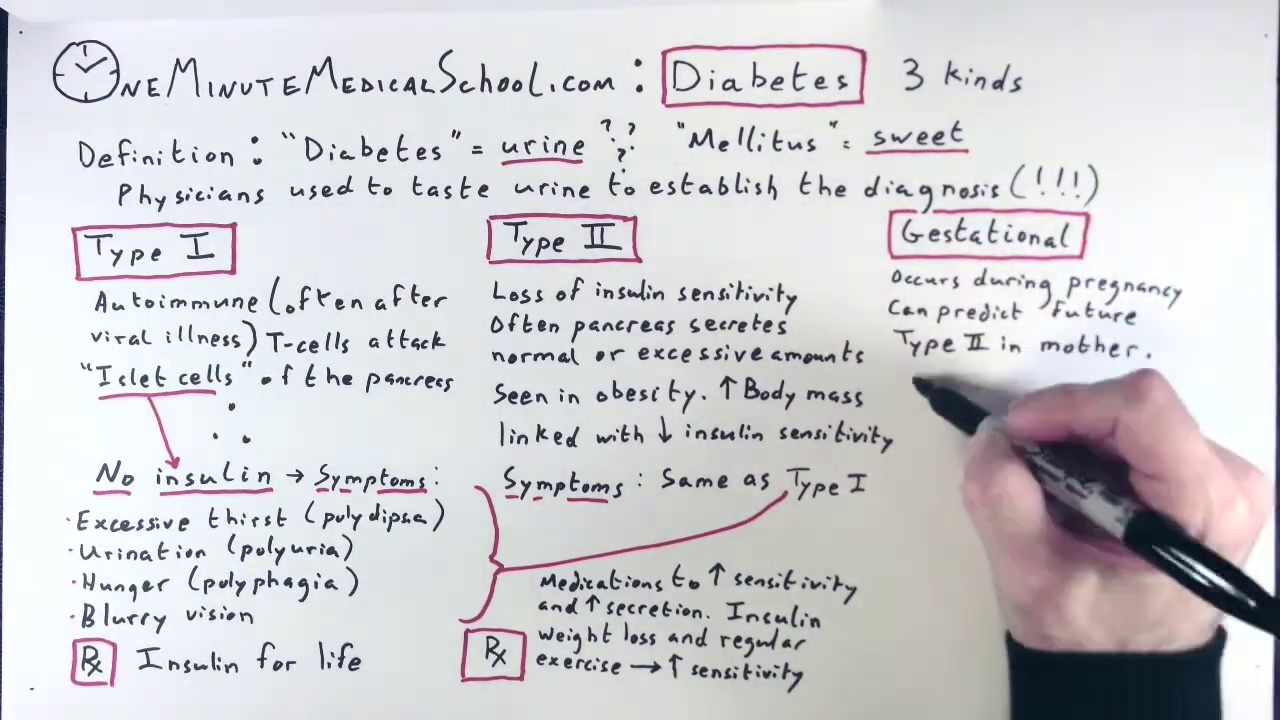 OneMinuteMedicalSchool.com: Diabetes 3 kinds
Definition: "Diabetes" = urine ??? "Mellitus" = sweet
Physicians used to taste urine to establish the diagnosis (!!!)
Type I
Autoimmune (often after
viral illness) T-cells attack
"Islet cells" of the pancreas
∴ No insulin → Symptoms:
• Excessive thirst (polydipsa)
• Urination (polyuria)
• Hunger (polyphagia)
• Blurry vision
Rx Insulin for life
Type II
Loss of insulin sensitivity
Often pancreas secretes
normal or excessive amounts
Seen in obesity. ↑ Body mass
linked with ↓ insulin sensitivity
Symptoms: Same as Type I
Rx
Medications to ↑ sensitivity
and ↑ secretion. Insulin
weight loss and regular
exercise → ↑ sensitivity
Gestational
Occurs during pregnancy
Can predict future
Type II in mother.